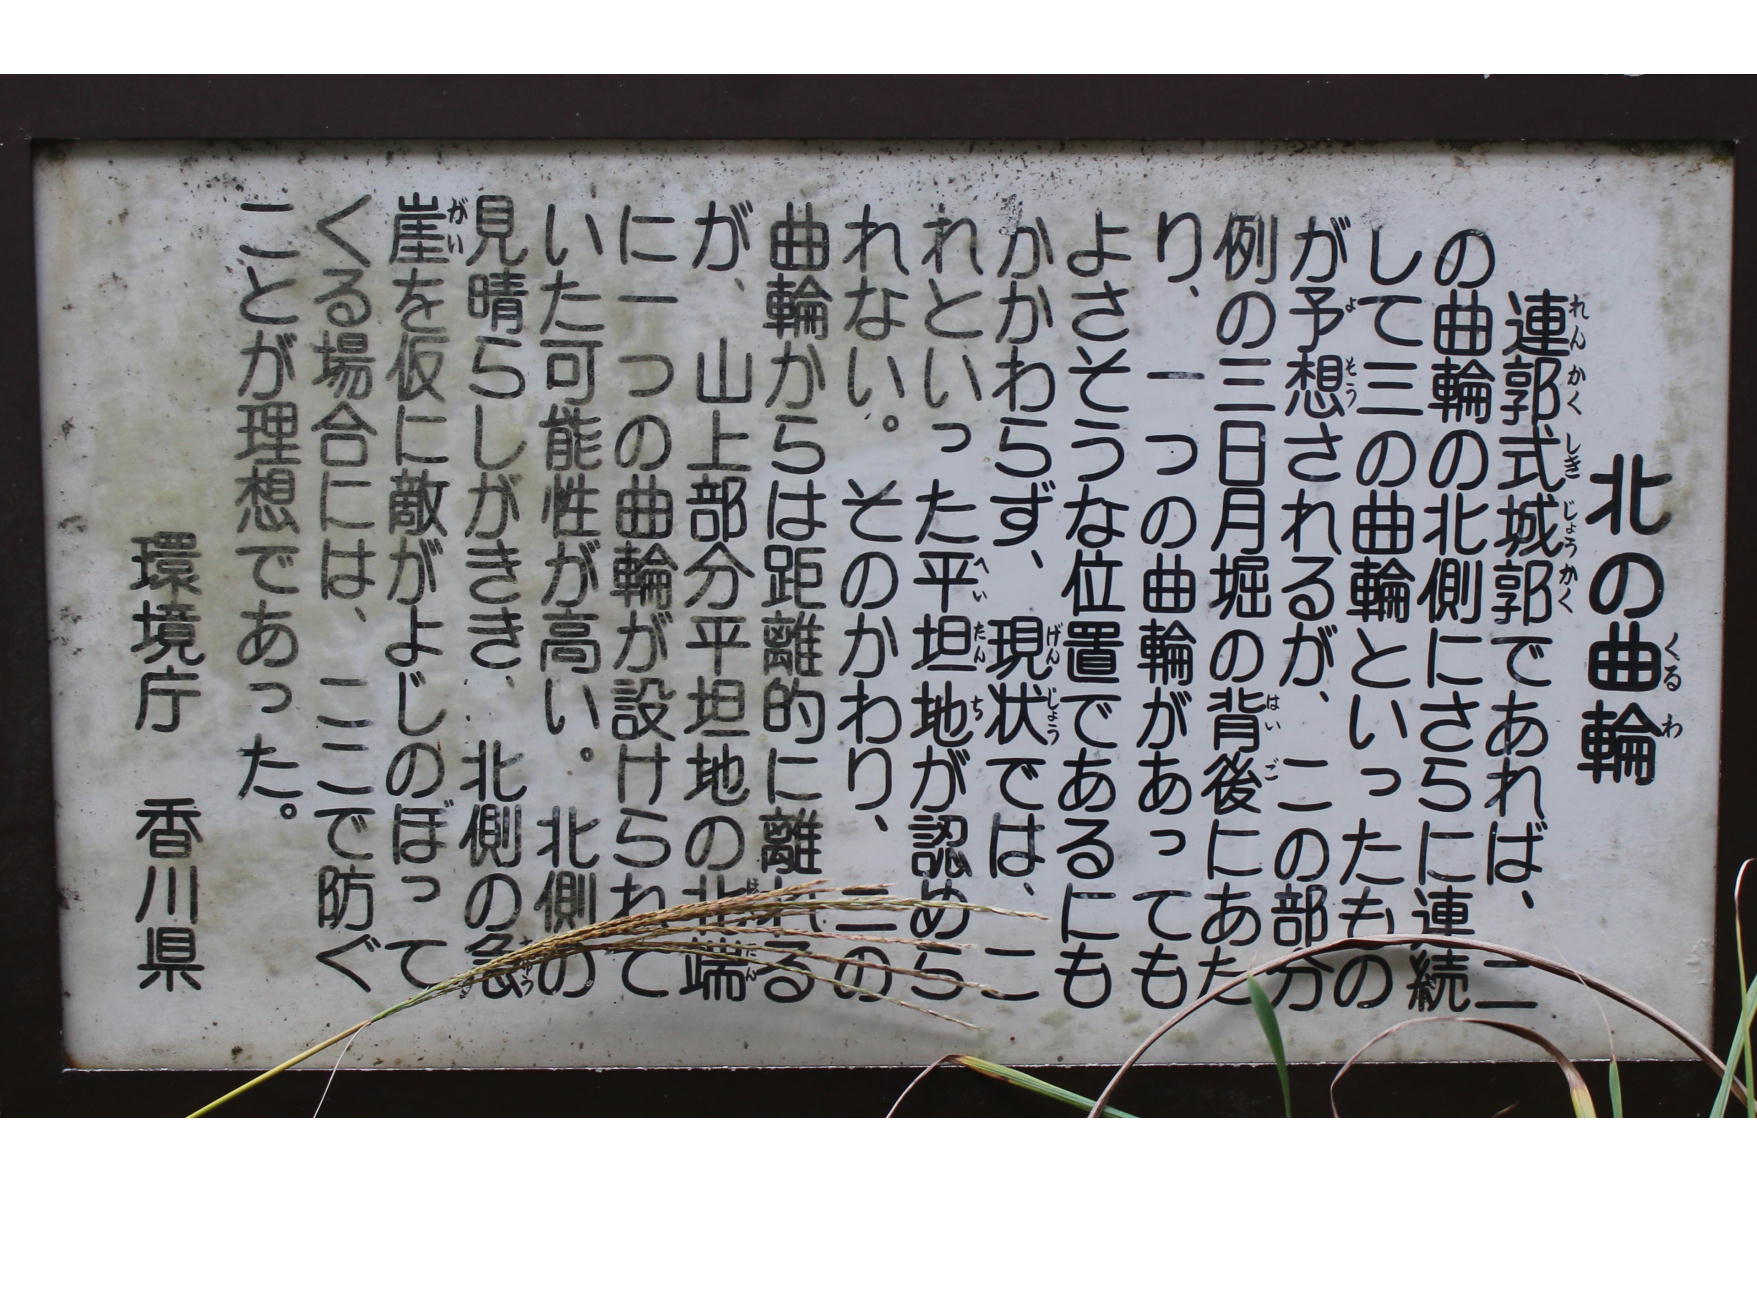 北の曲輪
連郭式城郭であれば、二
の曲輪の北側にさらに連続
して三の曲輪といったもの
が予想されるが、この部分
例の三日月堀の背後にあた
り、一つの曲輪があっても
よさそうな位置であるにも
かかわらず、現状では、こ
れといった平坦地が認めら
れない。そのかわり、二の
曲輪からは距離的に離れる
が、山上部分平坦地の北端
に一つの曲輪が設けられて
いた可能性が高い。北側の
見晴らしがきき、北側の急
崖を仮に敵がよじのぼって
くる場合には、ここで防ぐ
ことが理想であった。
環境庁 香川県